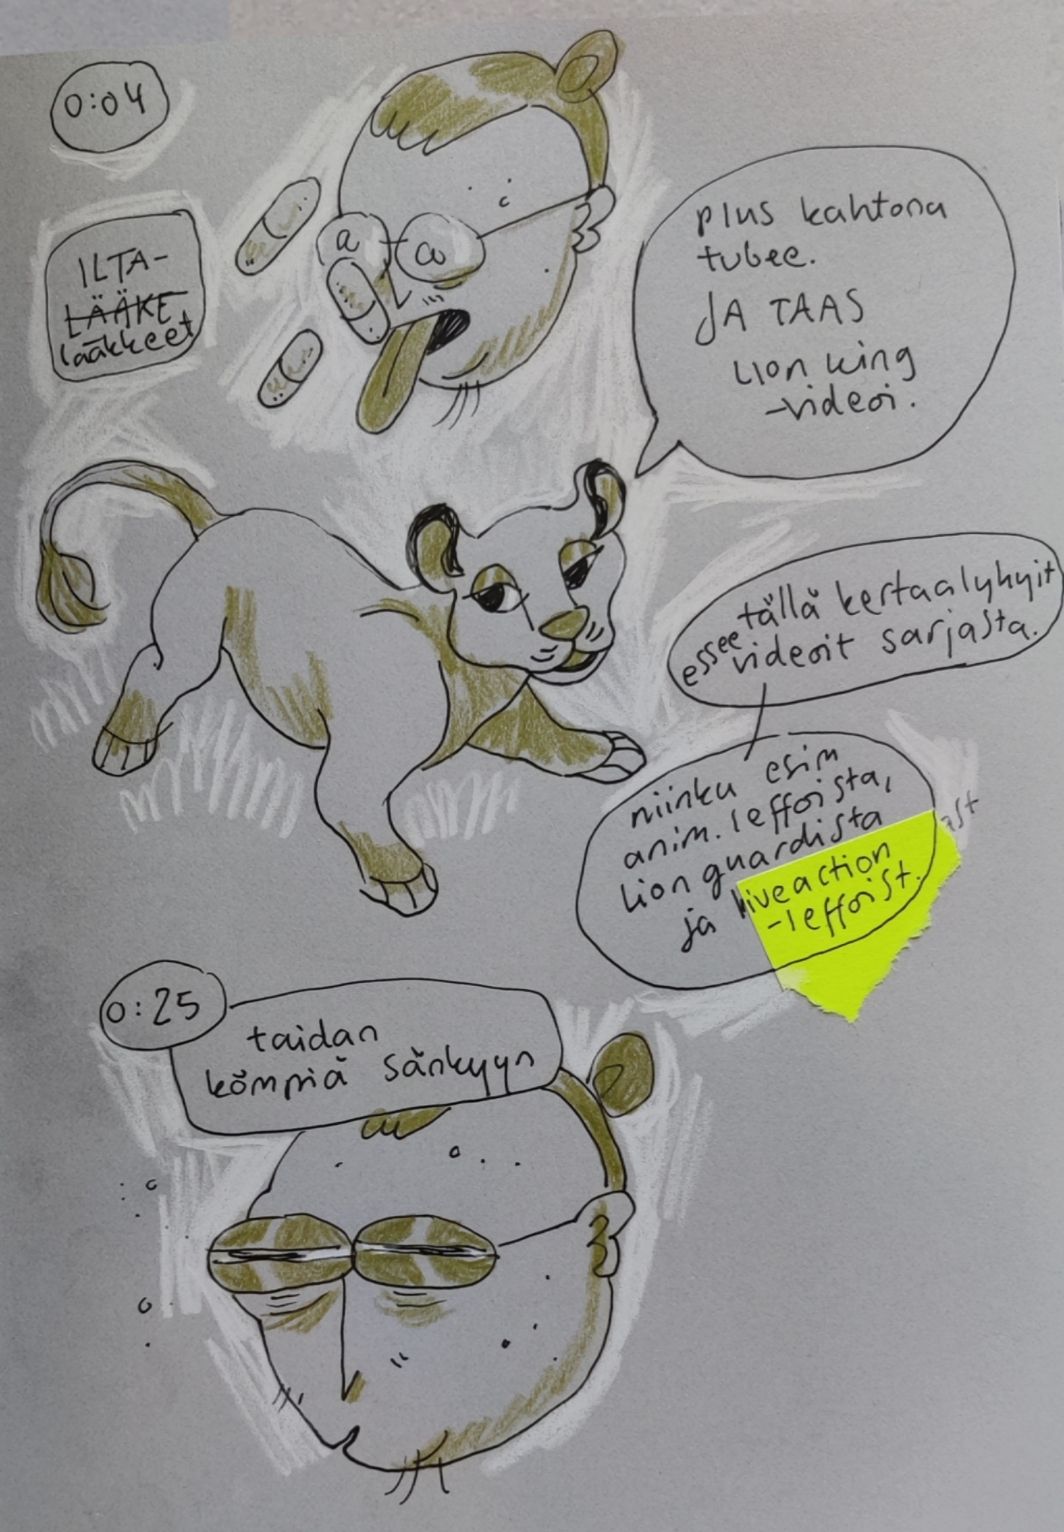 0:04
ILTA-
LÄÄKE
lääkkeet
plus kahtona
tubee.
JA TAAS
Lion king
-videoi.
tällä kertaa lyhyit
essee videoit sarjasta.
niinku esim
anim. leffoista,
Lion guardista
ja liveaction
-leffoist.
0:25
taidan
kömpiä sänkyyn